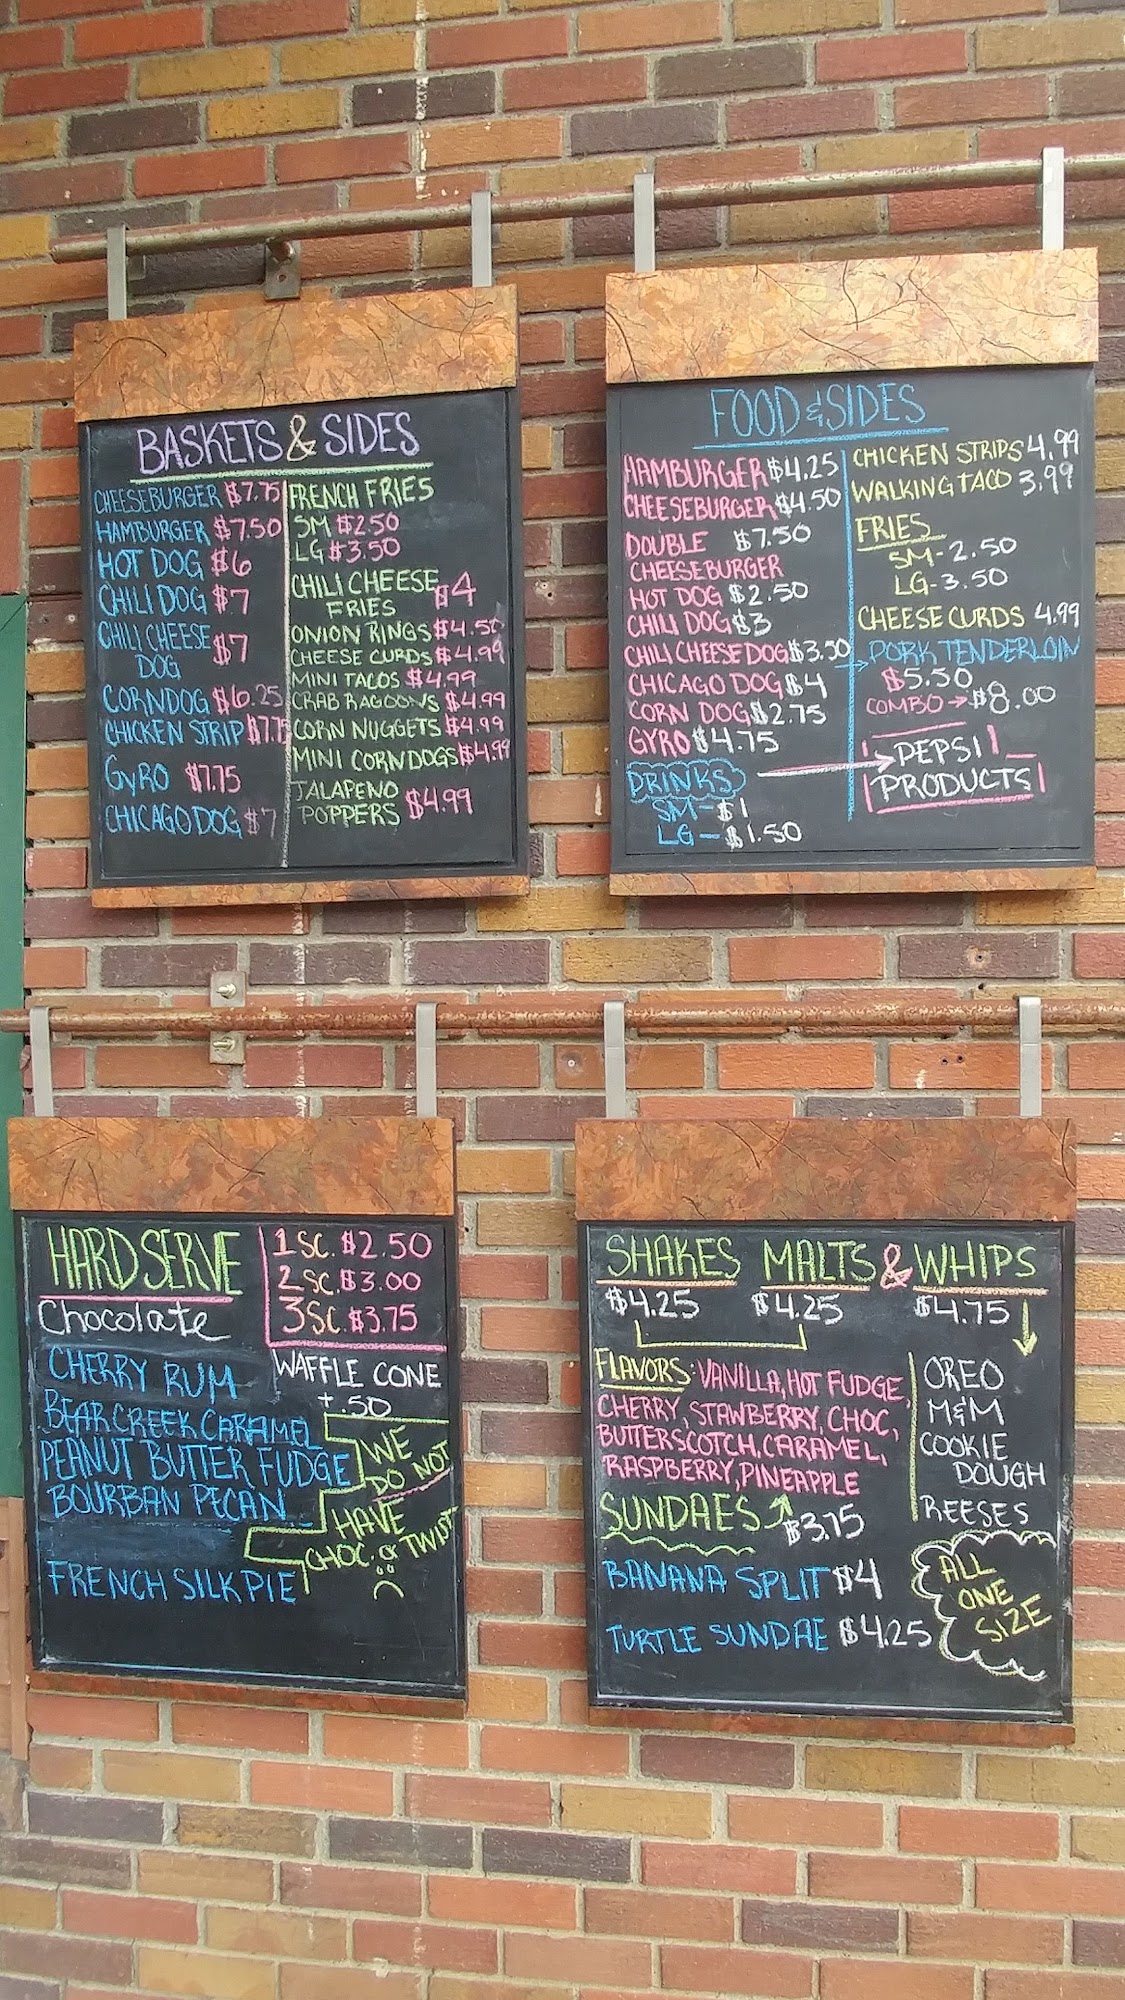 BASKETS & SIDES
CHEESEBURGER $7.75
HAMBURGER $7.50
HOT DOG $6
CHILI DOG $7
CHILI CHEESE $7
DOG
CORNDOG $6.25
CHICKEN STRIP $7.75
GYRO $7.75
CHICAGO DOG $7
FRENCH FRIES
SM $2.50
LG $3.50
CHILI CHEESE $4
FRIES
ONION RINGS $4.50
CHEESE CURDS $4.99
MINI TACOS $4.99
CRAB RAGOONS $4.99
CORN NUGGETS $4.99
MINI CORNDOGS $4.99
JALAPENO
POPPERS $4.99
FOOD & SIDES
HAMBURGER $4.25
CHEESEBURGER $4.50
DOUBLE $7.50
CHEESEBURGER
HOT DOG $2.50
CHILI DOG $3
CHILI CHEESE DOG $3.50
CHICAGO DOG $4
CORN DOG $2.75
GYRO $4.75
DRINKS
SM - $1
LG - $1.50
CHICKEN STRIPS 4.99
WALKING TACO 3.99
FRIES
SM - 2.50
LG - 3.50
CHEESE CURDS 4.99
PORK TENDERLOIN
$5.50
COMBO → $8.00
PEPSI
PRODUCTS
HARD SERVE
1 SC. $2.50
2 SC. $3.00
3 SC. $3.75
WAFFLE CONE
+.50
Chocolate
CHERRY RUM
BEAR CREEK CARAMEL
PEANUT BUTTER FUDGE
BOURBAN PECAN
FRENCH SILK PIE
WE
DO NOT
HAVE
CHOC. or TWIST
SHAKES MALTS & WHIPS
$4.25 $4.25 $4.75
FLAVORS: VANILLA, HOT FUDGE,
CHERRY, STAWBERRY, CHOC,
BUTTERSCOTCH, CARAMEL,
RASPBERRY, PINEAPPLE
OREO
M&M
COOKIE
DOUGH
REESES
SUNDAES $3.75
BANANA SPLIT $4
TURTLE SUNDAE $4.25
ALL
ONE
SIZE